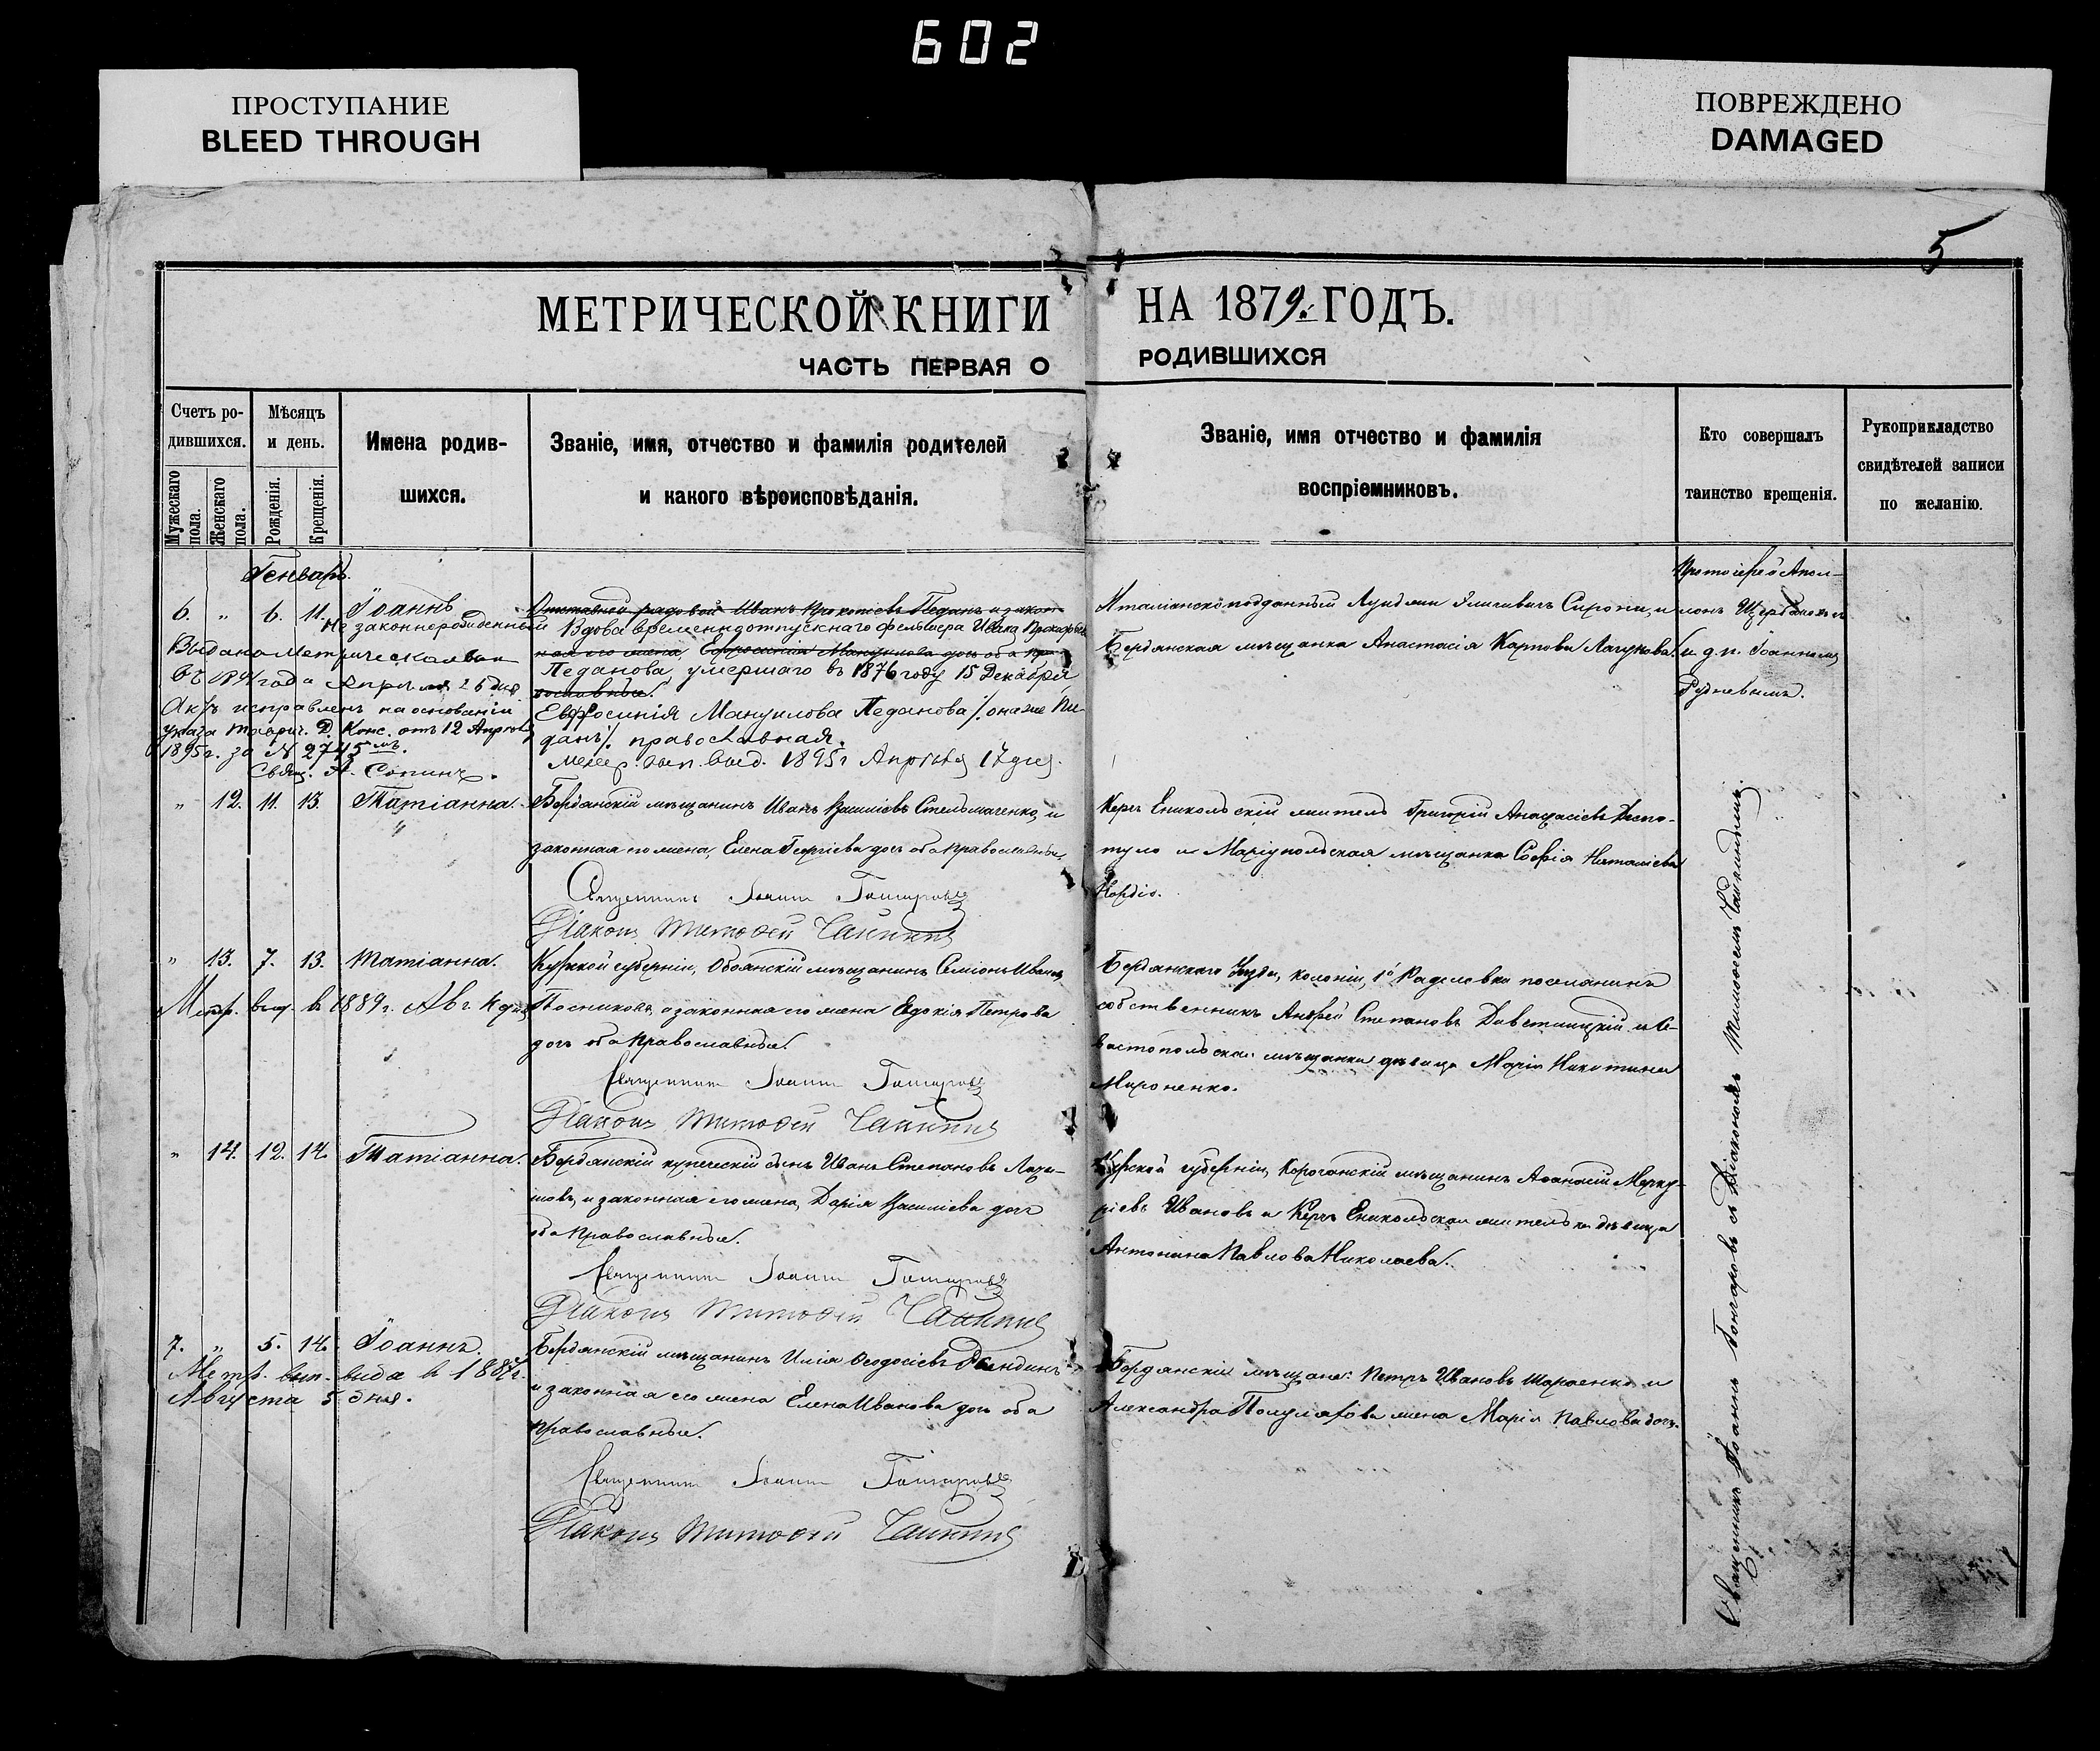 602
ПРОСТУПАНИЕ
BLEED THROUGH
ПОВРЕЖДЕНО
DAMAGED
5
МЕТРИЧЕСКОЙ КНИГИ НА 1879. ГОДЪ.
ЧАСТЬ ПЕРВАЯ О РОДИВШИХСЯ
Счетъ ро-
дившихся.
Мужескаго пола.
Женскаго пола.
Мѣсяцъ
и день.
Рожденія.
Крещенія.
Имена родив-
шихся.
Званіе, имя, отчество и фамилія родителей
и какого вѣроисповѣданія.
Званіе, имя отчество и фамилія
воспріемниковъ.
Кто совершалъ
таинство крещенія.
Рукоприкладство
свидѣтелей записи
по желанію.
Генварь.
6. " 6. 11. Іоаннъ
Незаконнорожденный
Выдана Метрическая
въ 1894 года Апрѣля 26 дня
Актъ исправленъ на основаніи
указа Таврич. Д. Конс. отъ 12 Апрѣля
1895 г. за № 2745мъ.
Свящ. А. Сопинъ.
Отставной рядовой Иванъ Прокопіевъ Педанъ и закон-
Вдова временноотпускнаго фельдшера Ивана
ная его жена, Ефросинія Мануилова дочь оба пра-
Педанова, умершаго въ 1876 году 15 Декабря,
вославные.
Евфросинія Мануилова Педанова /она же Пи-
данъ/. православная.
Метр. вып. выд. 1895 г Апрѣля 17 дня.
Италіанско подданный Сирони, и
Бердянская мѣщанка Анастасія Карпова
Протоіерей Апол-
лонъ
и д. п. Іоанномъ
Рудневымъ.
" 12. 11. 13. Татіанна.
Бердянскій мѣщанинъ Иванъ Василіевъ Стельмаченко, и
законная его жена, Елена Георгіева дочь оба православные.
Священникъ Іоаннъ Гончаровъ
Діаконъ Тимофей Чайкинъ
Керчь Еникольскій житель Григорій Анастасіевъ Деспо-
туло и Маріупольская мѣщанка Софія
" 13. 7. 13. Татіанна.
Метр. выд. в 1889 г. Авг. 4 дня
Курской губерніи, Обоянскій мѣщанинъ Симіонъ Ивановъ
Посниковъ, и законная его жена Евдокія Петрова
дочь оба Православные.
Священникъ Іоаннъ Гончаровъ
Діаконъ Тимофей Чайкинъ
Бердянскаго Уѣзда, колоніи, поселянинъ
собственникъ Андрей Степановъ и Се-
вастопольская мѣщанка дѣвица Марія Никитина
Мироненко.
" 14. 12. 14. Татіанна.
Бердянскій купеческій сынъ Иванъ Степановъ
и законная его жена, Дарія Василіева дочь
оба Православные.
Священникъ Іоаннъ Гончаровъ
Діаконъ Тимофей Чайкинъ
Курской губерніи, Корочанскій мѣщанинъ Афанасій Мерку-
ріевъ Ивановъ и Керчь Еникольская жителька дѣвица
Антонина Павлова Николаева.
7. " 5. 14. Іоаннъ.
Метр. вып. выда в 1887 г.
Августа 5 дня.
Бердянскій мѣщанинъ Илія Феодосіевъ
и законная его жена Елена Иванова дочь оба
Православные.
Священникъ Іоаннъ Гончаровъ
Діаконъ Тимофей Чайкинъ
Бердянскіе мѣщане: Петръ Ивановъ и
Александра жена Марія Павлова дочь.
Священникъ Іоаннъ Гончаровъ съ Діакономъ Тимофеемъ Чайкинымъ